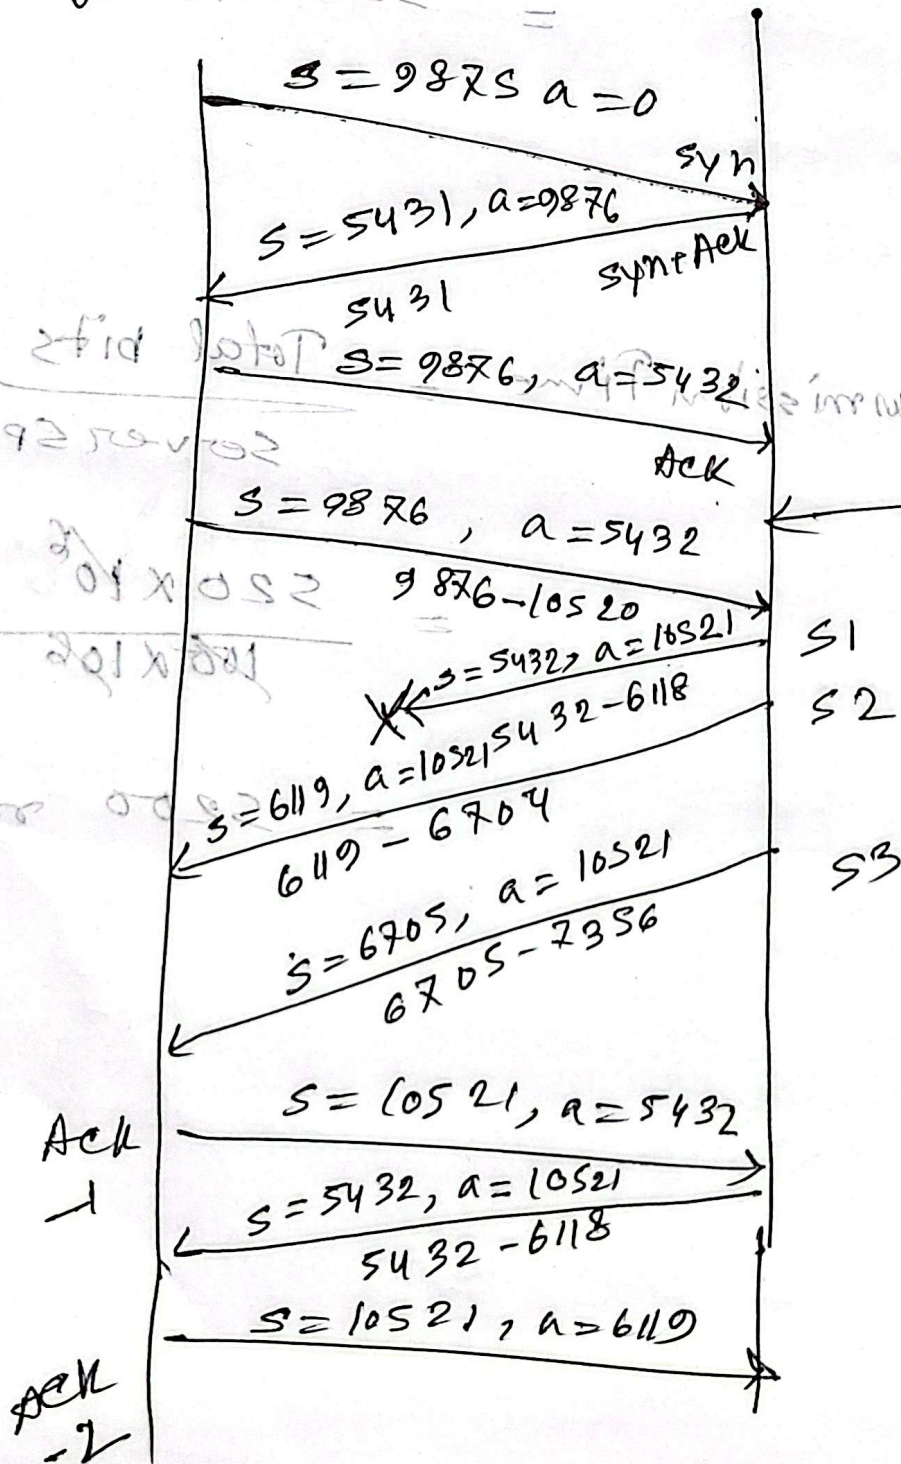 s = 9875 a = 0
syn
s = 5431, a = 9876
syn+Ack
5431
s = 9876, a = 5432
Ack
s = 9876, a = 5432
9876-10520
s = 5432, a = 10521
S1
5432-6118
S2
s = 6119, a = 10521
6119 - 6704
s = 6705, a = 10521
S3
6705-7356
s = 10521, a = 5432
Ack
1
s = 5432, a = 10521
5432-6118
s = 10521, a = 6119
Ack
-2